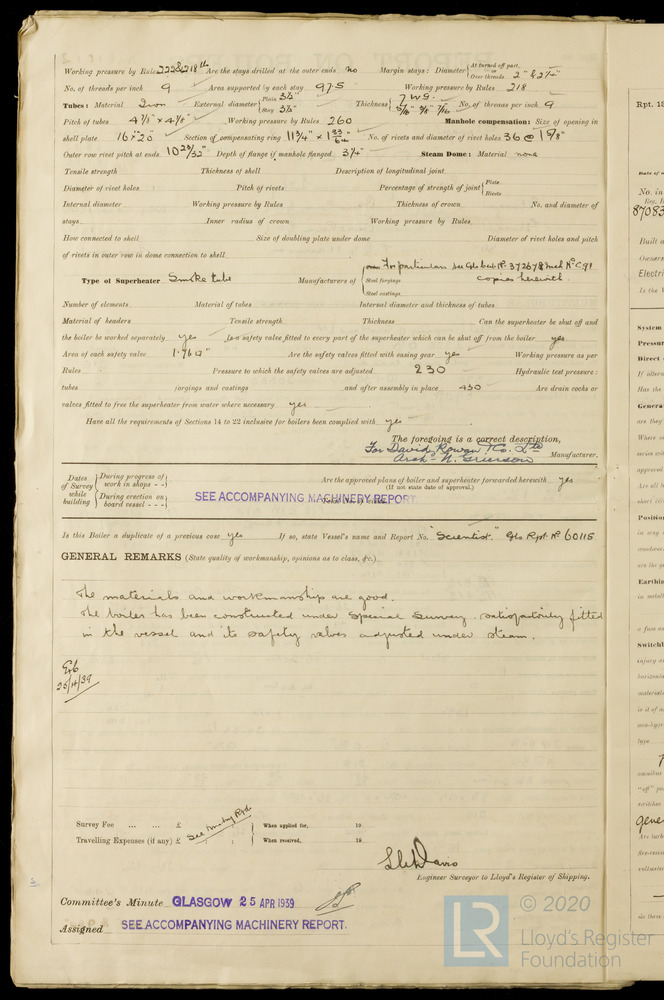 Working pressure by Rules 222 & 218 lb Are the stays drilled at the outer ends No Margin stays: Diameter At turned off part, or Over threads 2" & 2¼"
No. of threads per inch 9 Area supported by each stay 97.5 Working pressure by Rules 218
Tubes: Material Iron External diameter Plain 3½" Stay 3½" Thickness 7 WG 5/16" 3/8" 7/16 No. of threads per inch 9
Pitch of tubes Working pressure by Rules 260 Manhole compensation: Size of opening in
shell plate 16" x 20" Section of compensating ring 11¾" × No. of rivets and diameter of rivet holes 36 @
Outer row rivet pitch at ends Depth of flange if manhole flanged 3¾" Steam Dome: Material none
Tensile strength Thickness of shell Description of longitudinal joint
Diameter of rivet holes Pitch of rivets Percentage of strength of joint Plate Rivets
Internal diameter Working pressure by Rules Thickness of crown No. and diameter of
stays Inner radius of crown Working pressure by Rules
How connected to shell Size of doubling plate under dome Diameter of rivet holes and pitch
of rivets in outer row in dome connection to shell
Type of Superheater Smoke tube Manufacturers of Steel forgings Steel castings For particulars see Gls copies herewith
Number of elements Material of tubes Internal diameter and thickness of tubes
Material of headers Tensile strength Thickness Can the superheater be shut off and
the boiler be worked separately yes Is a safety valve fitted to every part of the superheater which can be shut off from the boiler yes
Area of each safety valve 1.76 Are the safety valves fitted with easing gear yes Working pressure as per
Rules Pressure to which the safety valves are adjusted 230 Hydraulic test pressure:
tubes forgings and castings and after assembly in place 430 Are drain cocks or
valves fitted to free the superheater from water where necessary yes
Have all the requirements of Sections 14 to 22 inclusive for boilers been complied with yes
The foregoing is a correct description,
For David Rowan & Co. Ltd
Archd. W. Grierson Manufacturer.
Dates of Survey while building During progress of work in shops - - Are the approved plans of boiler and superheater forwarded herewith yes
(If not state date of approval.)
During erection on board vessel - - - SEE ACCOMPANYING MACHINERY REPORT.
Is this Boiler a duplicate of a previous case yes If so, state Vessel's name and Report No. "Scientist" Gls Rpt No 60115
GENERAL REMARKS (State quality of workmanship, opinions as to class, &c.)
The materials and workmanship are good.
The boiler has been constructed under special survey, satisfactorily fitted
in the vessel and its safety valves adjusted under steam.
Survey Fee ... ... £ See Machy Rpt. When applied for, 19
Travelling Expenses (if any) £ When received, 19
Engineer Surveyor to Lloyd's Register of Shipping.
Committee's Minute GLASGOW 25 APR 1939
Assigned SEE ACCOMPANYING MACHINERY REPORT.
Rpt. 13
No. in
87083
Built a
Owners
Electri
Is the
System
Pressur
Direct
Has the
Genera
are they
Positio
Earthin
Switchb
LR © 2020
Lloyd's Register
Foundation